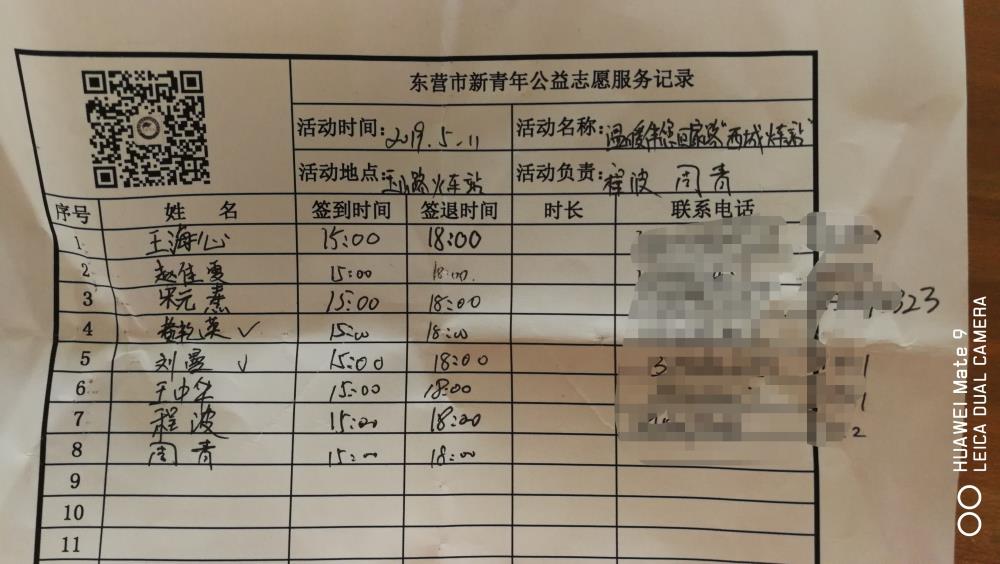 东营市新青年公益志愿服务记录
活动时间: 2019.5.11 活动名称: 温暖伴您回家路"西城火车站"
活动地点: 火车站 活动负责: 程波 周青
序号 姓 名 签到时间 签退时间 时长 联系电话
1 王海心 15:00 18:00
2 赵佳雯 15:00 18:00
3 宋元熹 15:00 18:00 323
4 15:00 18:00
5 刘曼 ✓ 15:00 18:00 3 1
6 王中华 15:00 18:00 1
7 程波 15:00 18:00 2
8 周青 15:00 18:00
9
10
11
HUAWEI Mate 9
LEICA DUAL CAMERA